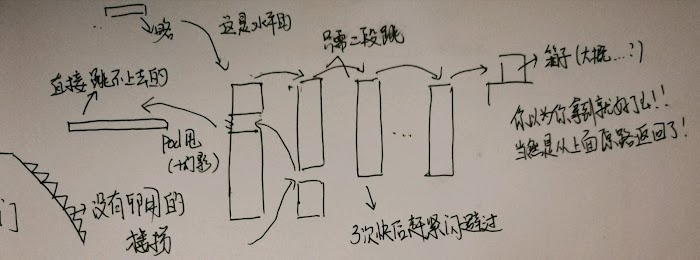 略
这是水平的
只需二段跳
箱子(大概…?)
直接跳不上去的
你以为你拿到就好了么!!
当然是从上面原路返回了!
Pod甩
(+幻影)
门
没有卵用的
楼梯
3次快后赶紧闪避过